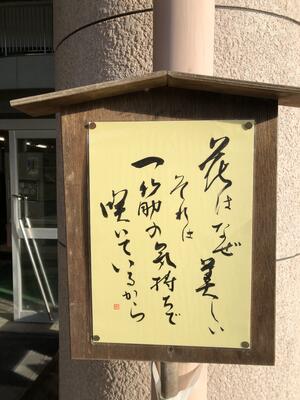 花はなぜ美しい
それは
一筋の気持ちで
咲いているから